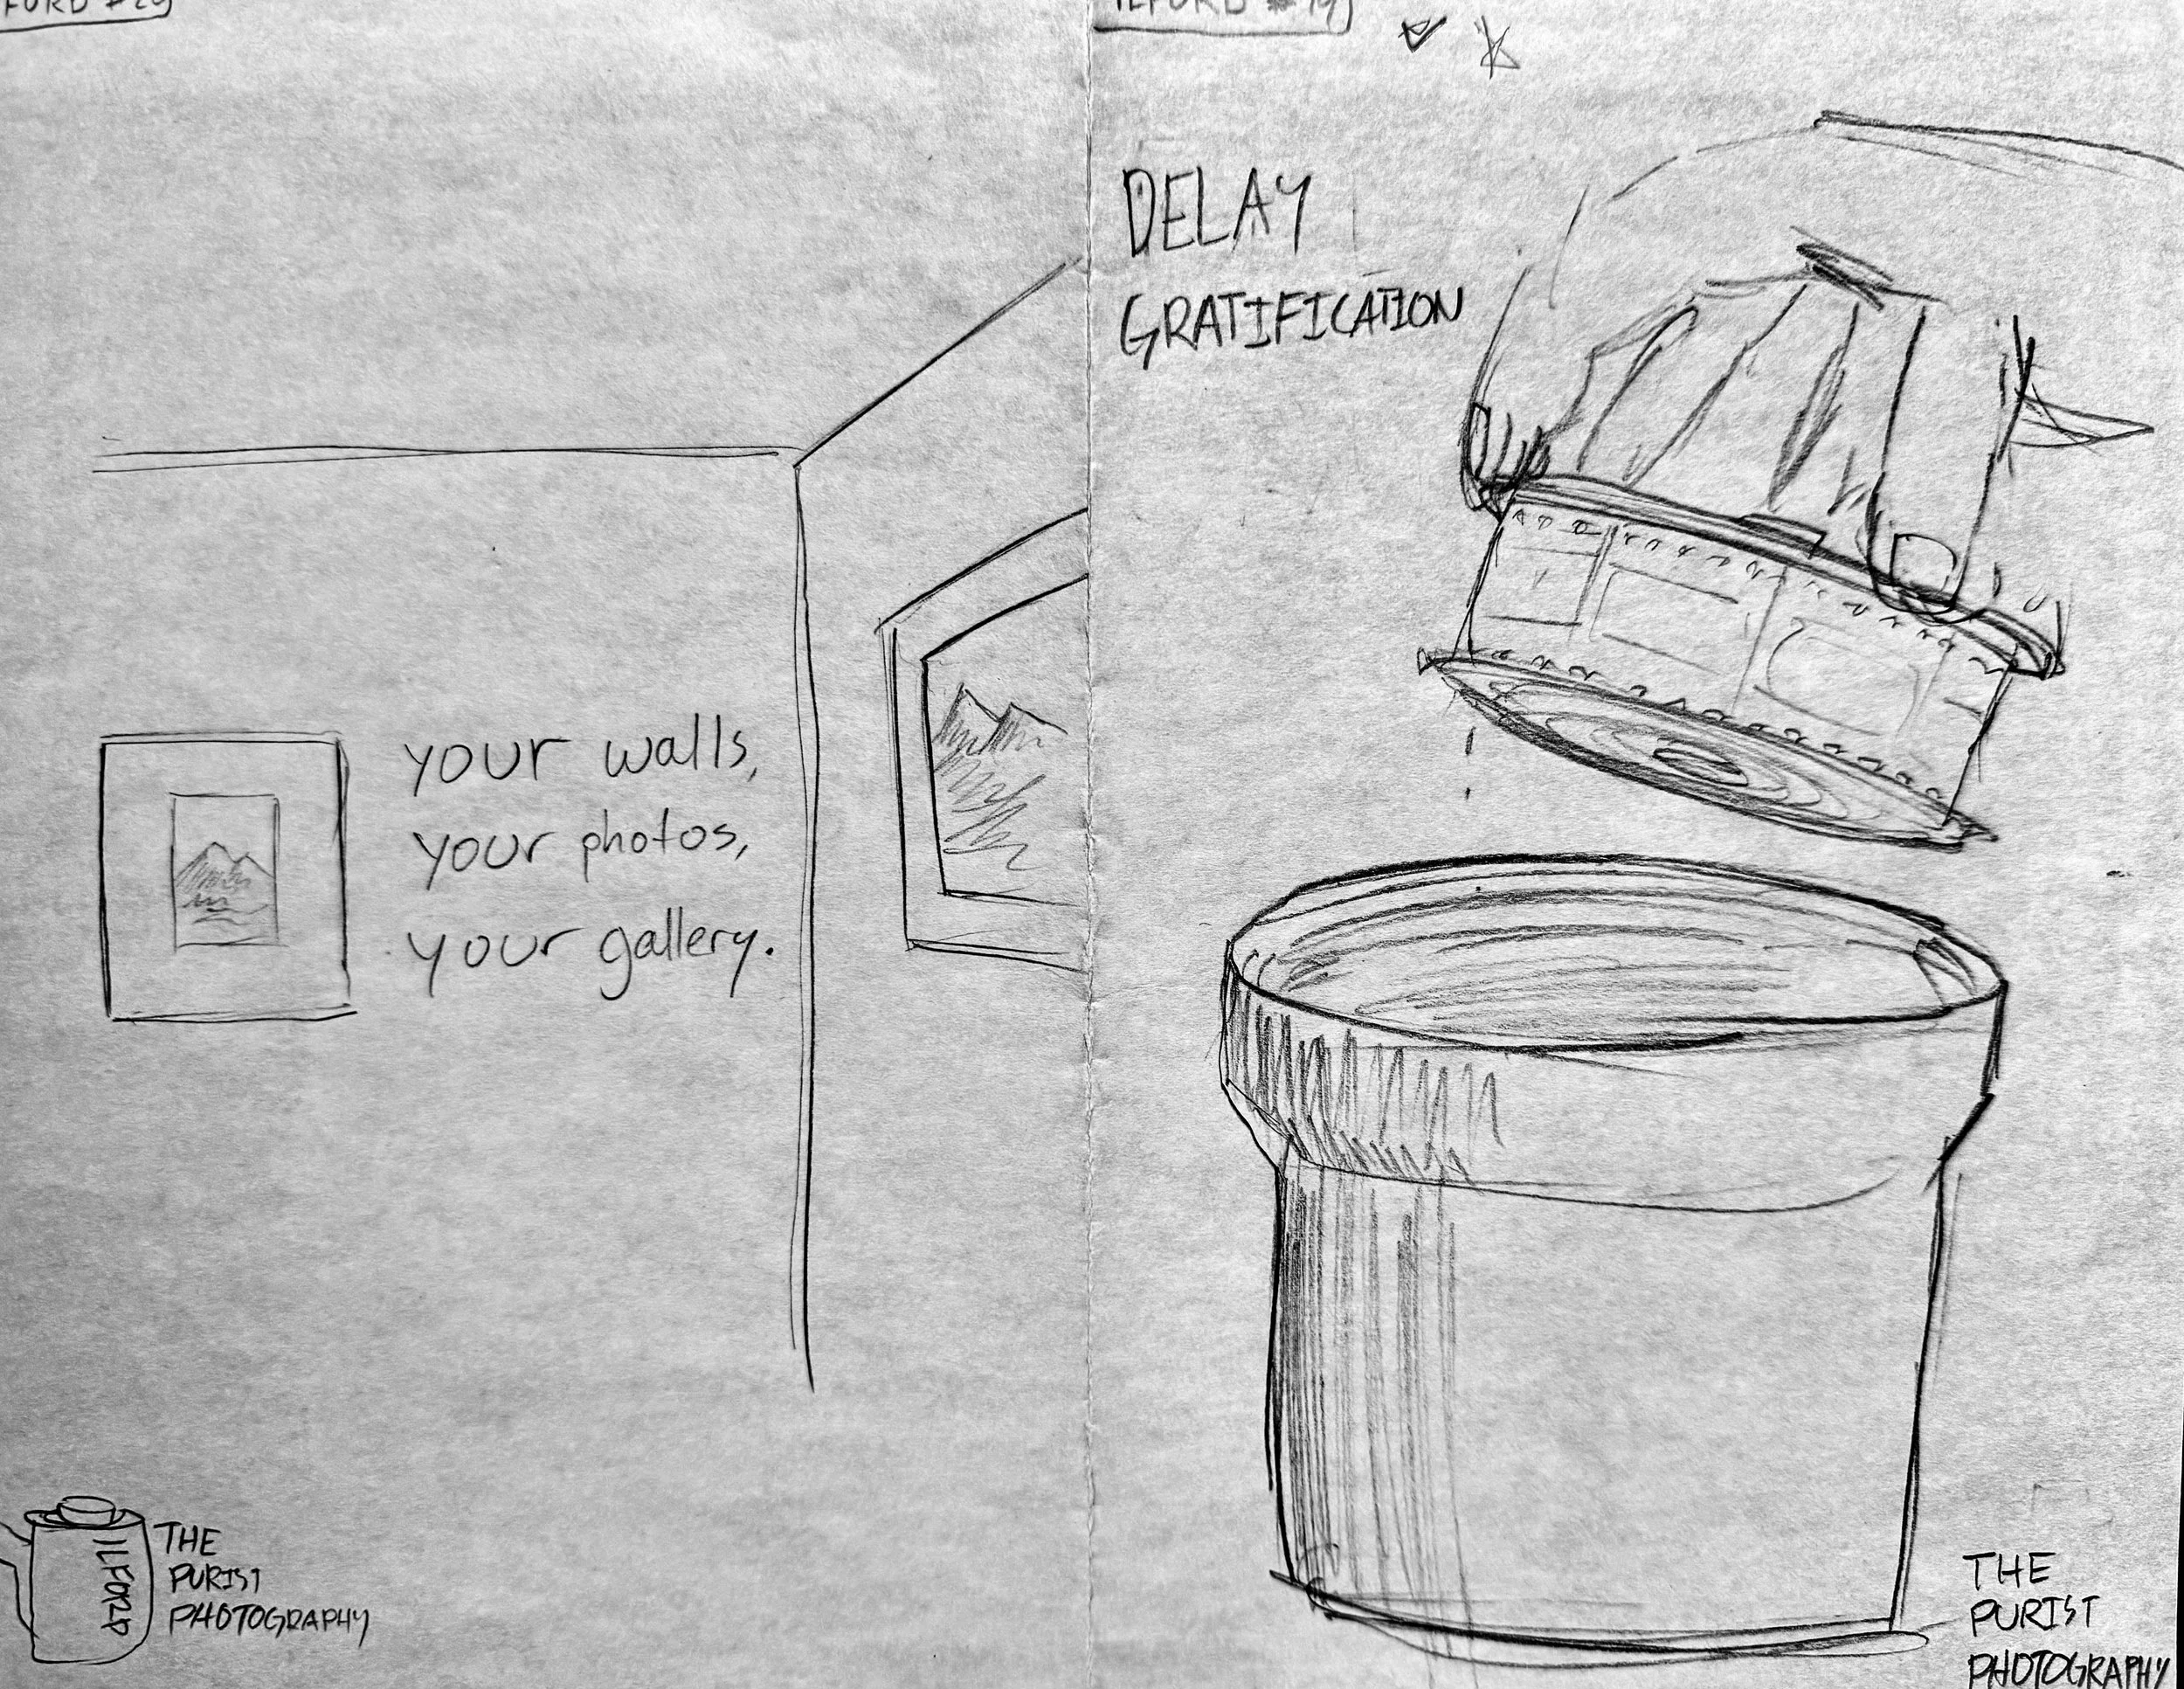 ILFORD #19
DELAY
GRATIFICATION
your walls,
your photos,
your gallery.
ILFORD
THE
PURIST
PHOTOGRAPHY
THE
PURIST
PHOTOGRAPHY